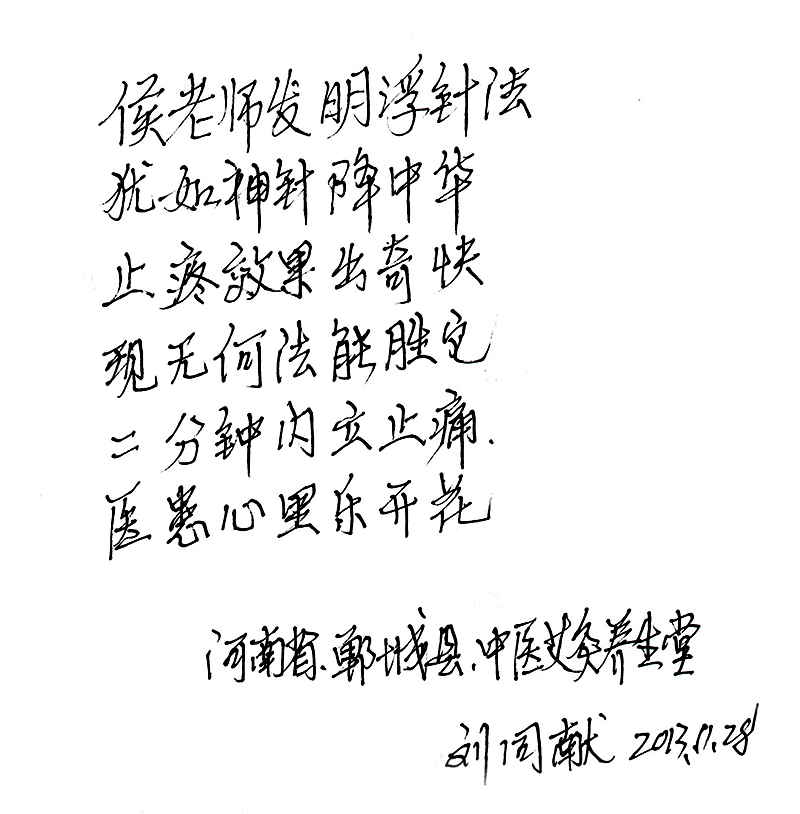 侯老师发明浮针法
犹如神针降中华
止疼效果出奇快
现无何法能胜它
二分钟内立止痛.
医患心里乐开花
河南省.郸城县.中医艾灸养生堂
刘同献 2013.11.28